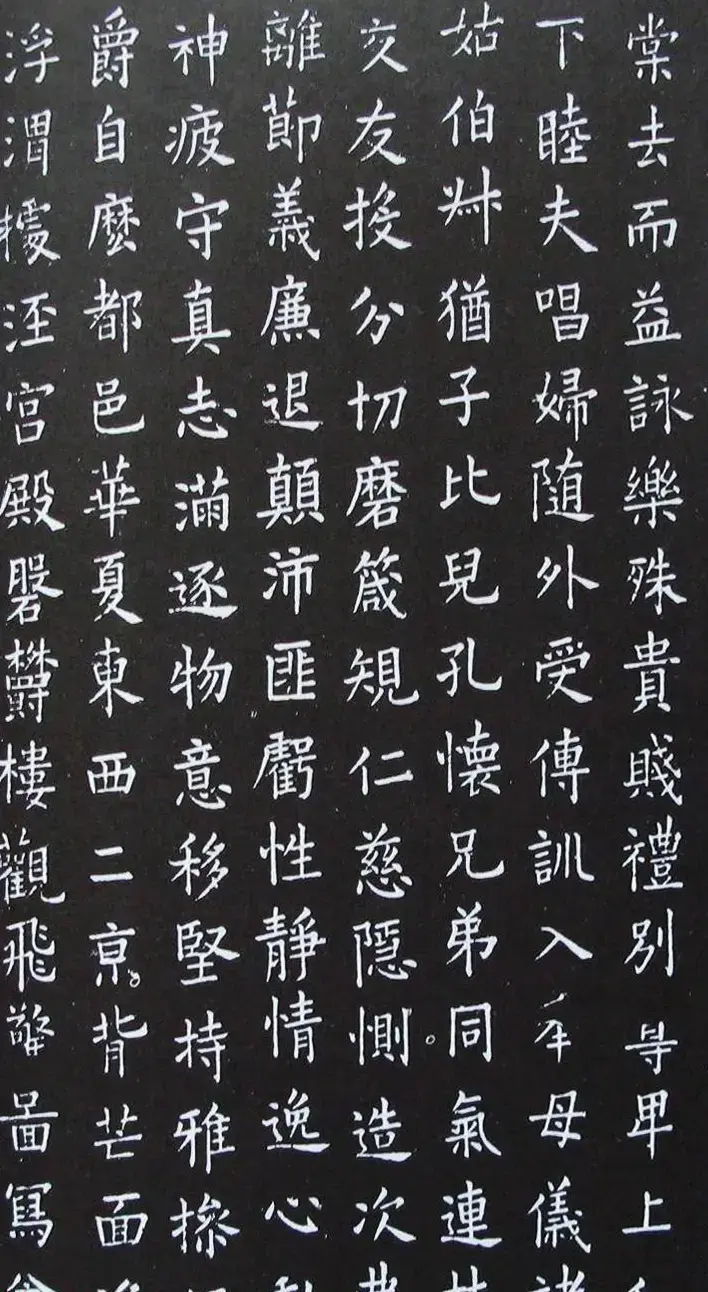 棠去而益詠樂殊貴賤禮別尊卑上
下睦夫唱婦隨外受傅訓入奉母儀
姑伯叔猶子比兒孔懷兄弟同氣連
交友投分切磨箴規仁慈隱惻造次
離節義廉退顛沛匪虧性靜情逸心
神疲守真志滿逐物意移堅持雅操
爵自縻都邑華夏東西二京背芒面
浮渭據涇宮殿盤鬱樓觀飛驚圖寫